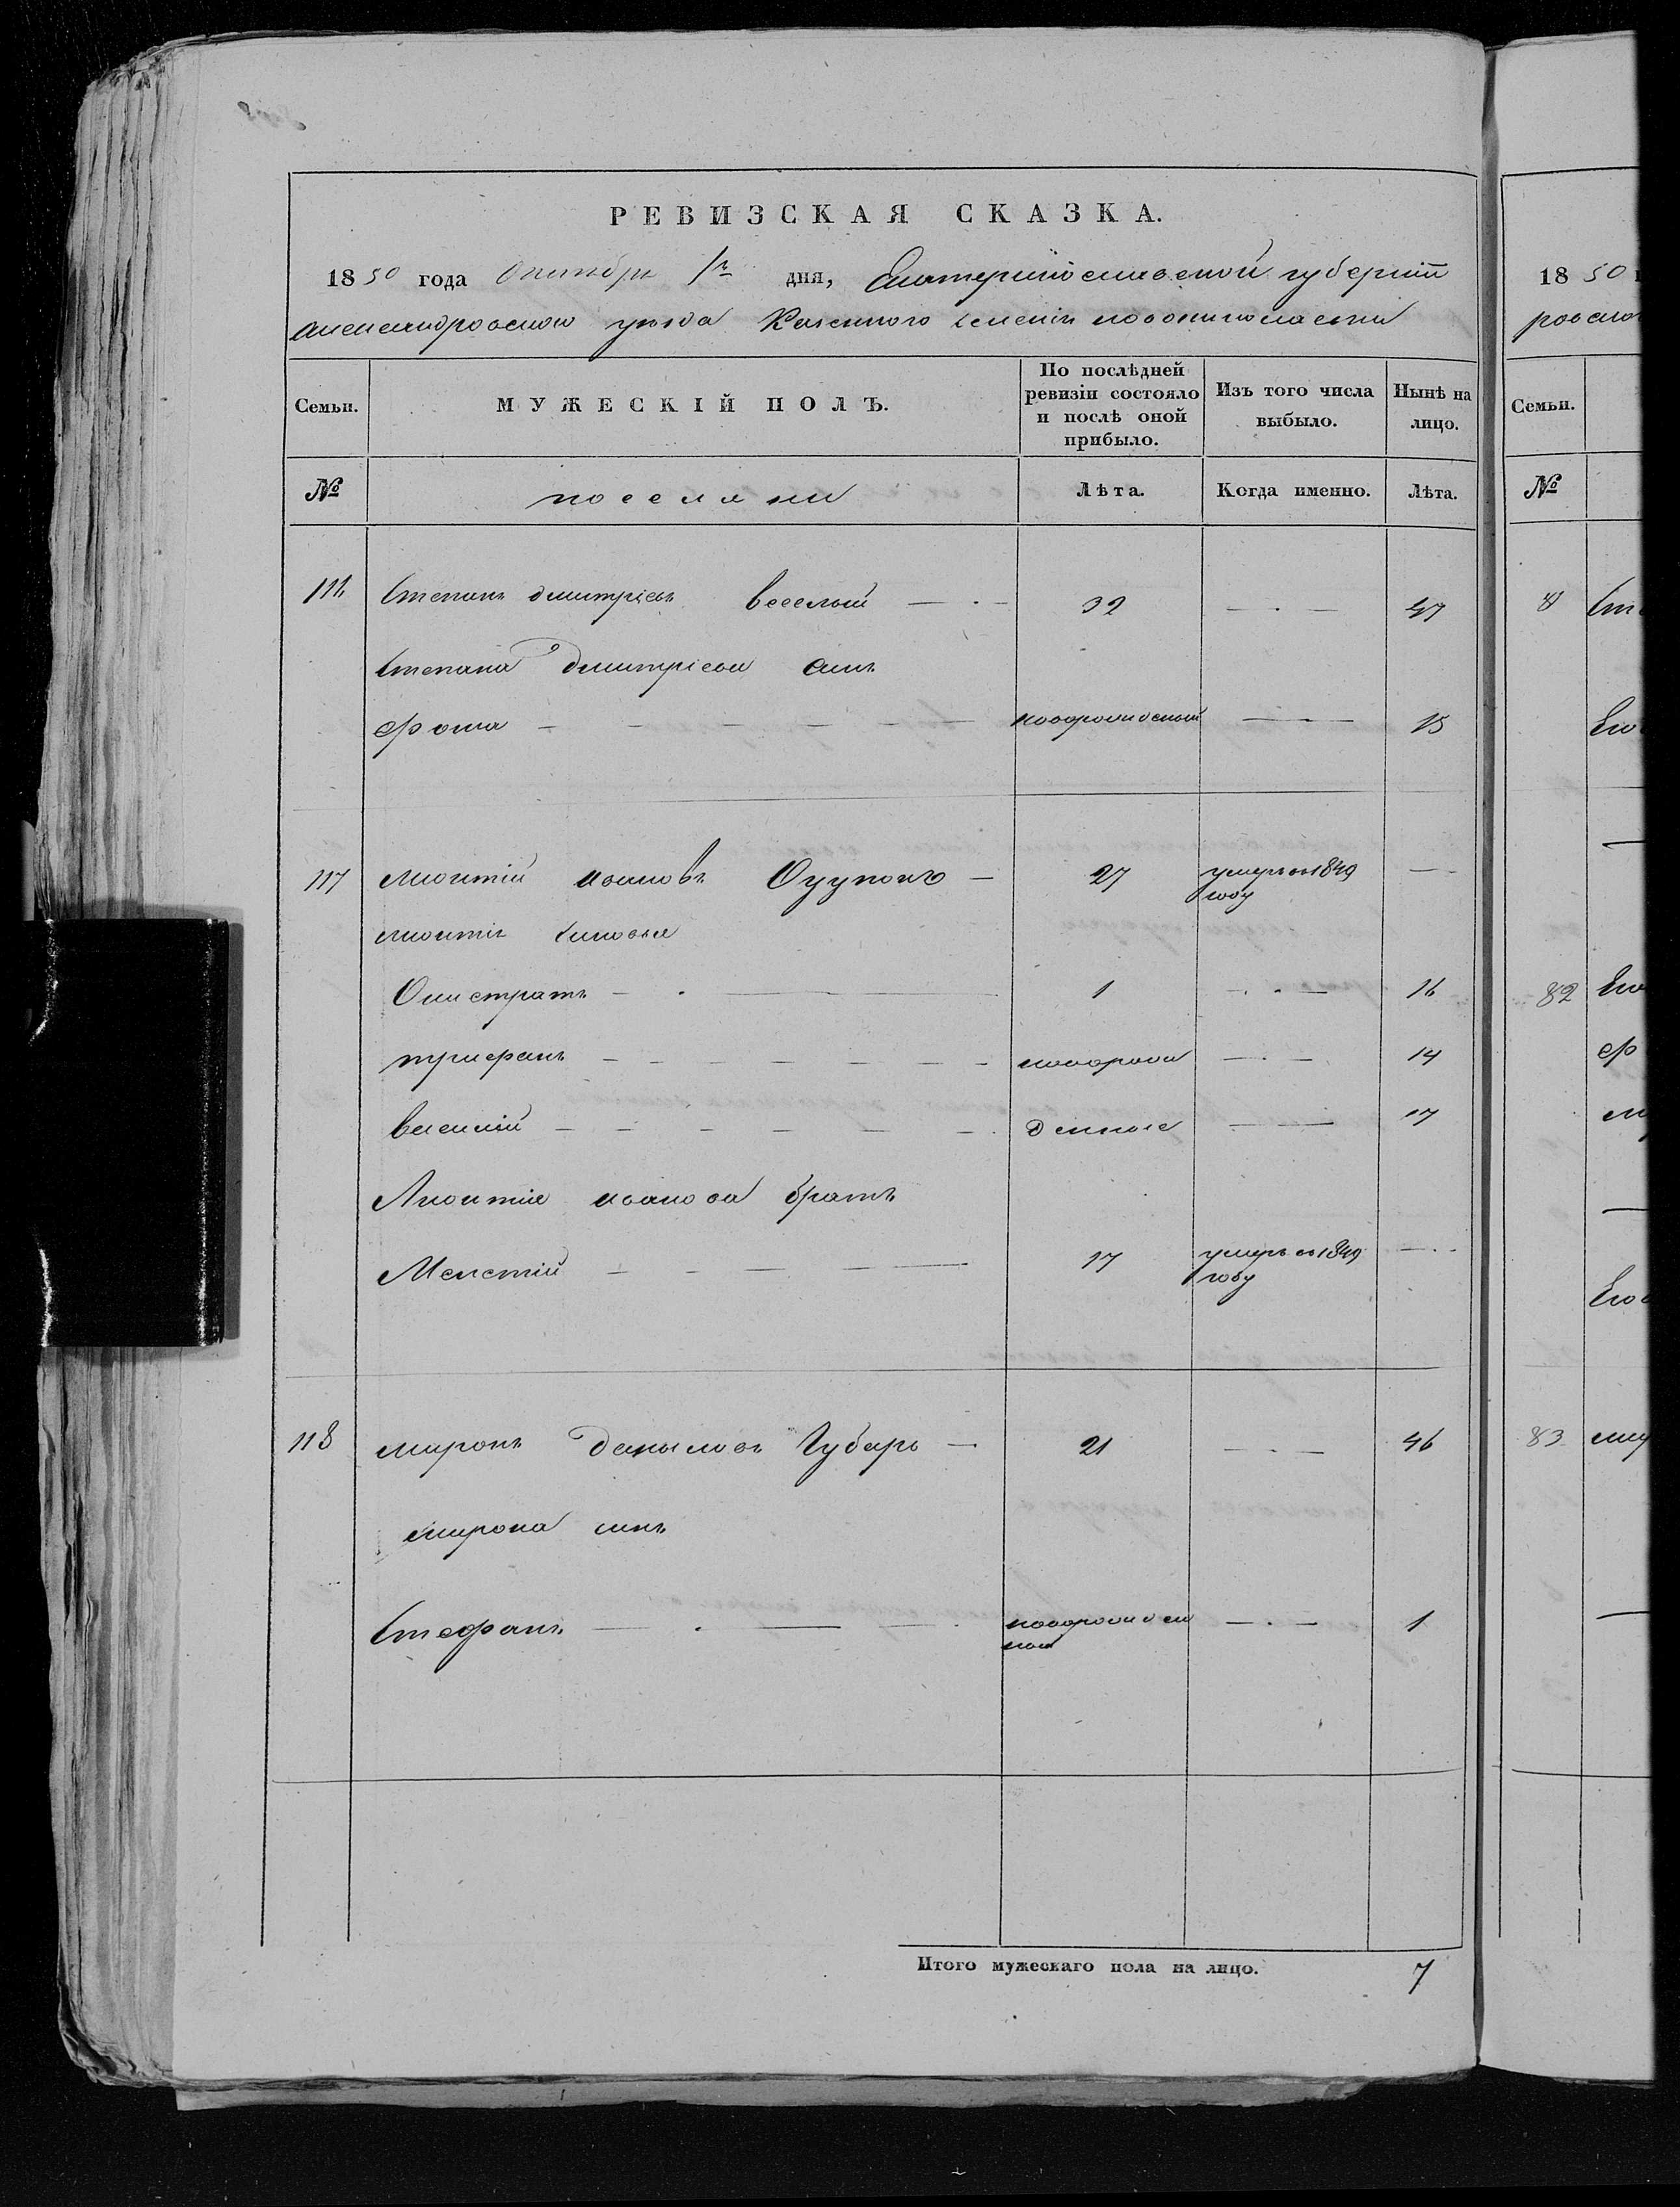 РЕВИЗСКАЯ СКАЗКА.
1850 года Октября 1го дня, Екатеринославской губернии
александровского уезда Казенного селения новониколаевки
Семьи. МУЖЕСКІЙ ПОЛЪ. По послѣдней ревизіи состояло и послѣ оной прибыло. Изъ того числа выбыло. Нынѣ на лицо.
№ поселяни Лѣта. Когда именно. Лѣта.
Степанъ дмитріевъ веселый 32 47
Степана дмитріева сынъ
фома новорожденый 15
117 леонтій ивановъ 27 умеръ въ 1849 году
леонтія сыновья
Онистратъ 1 16
трифанъ новорож 14
василій денные
Леонтія иванова братъ
Мелетій 17 умеръ въ 1849 году
118 миронъ даныловъ Губарь 21 46
мирона сынъ
Стефанъ новорожден ной 1
Итого мужескаго пола на лицо. 7
18 50
Семьи.
№
82
83